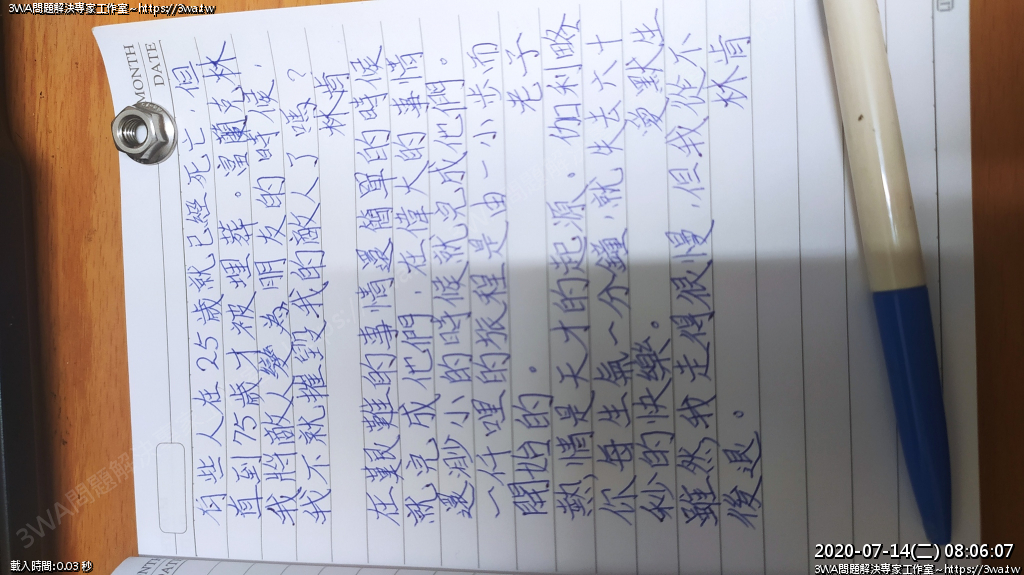 3WA問題解決專家工作室~https://3wa.tw
MONTH
DATE
有些人在25歲就已經死亡,但
直到75歲才被埋葬。富蘭克林
我將敵人變為朋友的時候,
我不就摧毀我的敵人了嗎?
林肯
在艱難的事情還簡單的時候
就完成他們,在偉大的事情
還渺小的時候就完成他們。
一千哩的旅程是由一小步而
開始的。 老子
熱情是天才的起源。 伽利略
你每生氣一分鐘,就失去六十
秒的快樂。 愛默生
雖然我走得很慢,但我從不
後退。 林肯
載入時間:0.03 秒
2020-07-14(二) 08:06:07
3WA問題解決專家工作室~https://3wa.tw